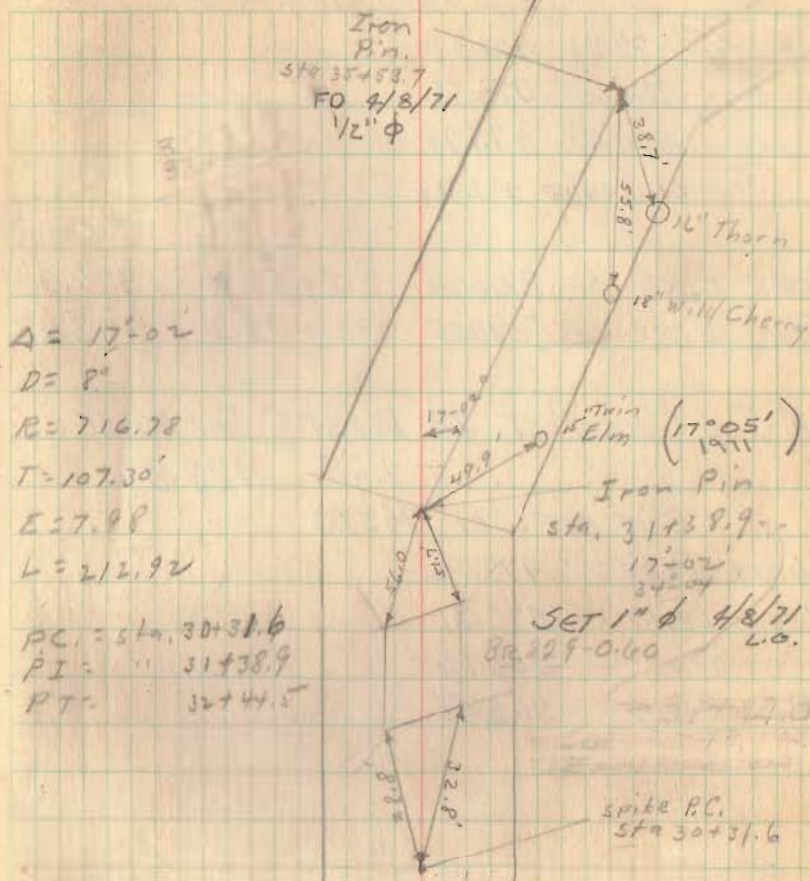 Iron
Pin.
sta. 35+53.7
FD 4/8/71
1/2" ϕ
38.7'
55.8'
16" Thorn
18" Wild Cherry
Δ = 17°-02'
D = 8°
R = 716.78
T = 107.30'
E = 7.98
L = 212.92
P.C. = sta. 30+31.6
PI = " 31+38.9
PT = 32+44.5
17-02
49.9'
15" Twin
Elm
(17°05'
1971)
Iron Pin
sta. 31+38.9
17°-02'
34°-04'
SET 1" ϕ 4/8/71
L.O.
56.0
28.8'
32.8'
spike P.C.
sta 30+31.6